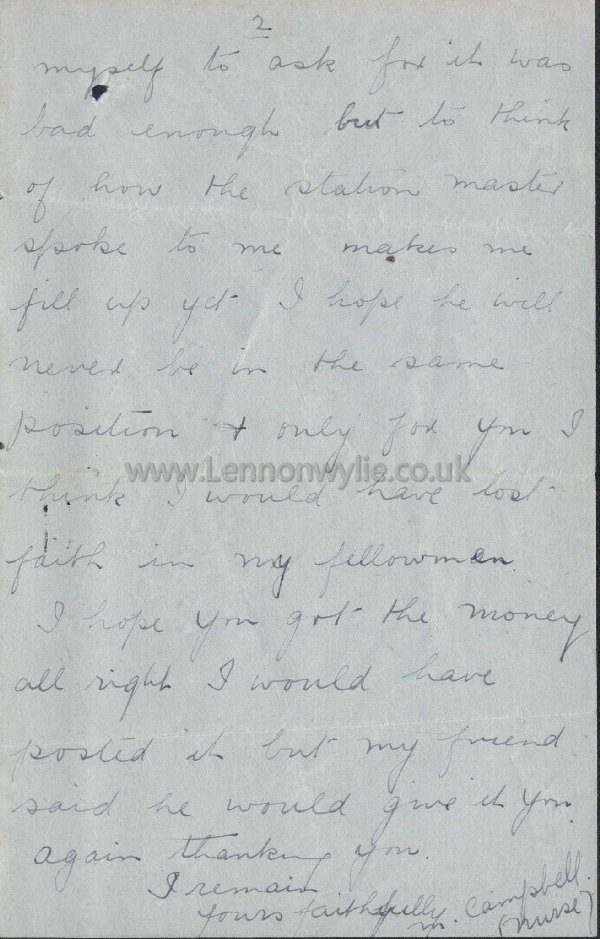 2
myself to ask for it was
bad enough but to think
of how the station master
spoke to me makes me
fill up yet I hope he will
never be in the same
position & only for you I
www.Lennonwylie.co.uk
think I would have lost
faith in my fellowman.
I hope you got the money
all right I would have
posted it but my friend
said he would give it you
again thanking you.
I remain
yours faithfully
M. Campbell.
(Nurse)